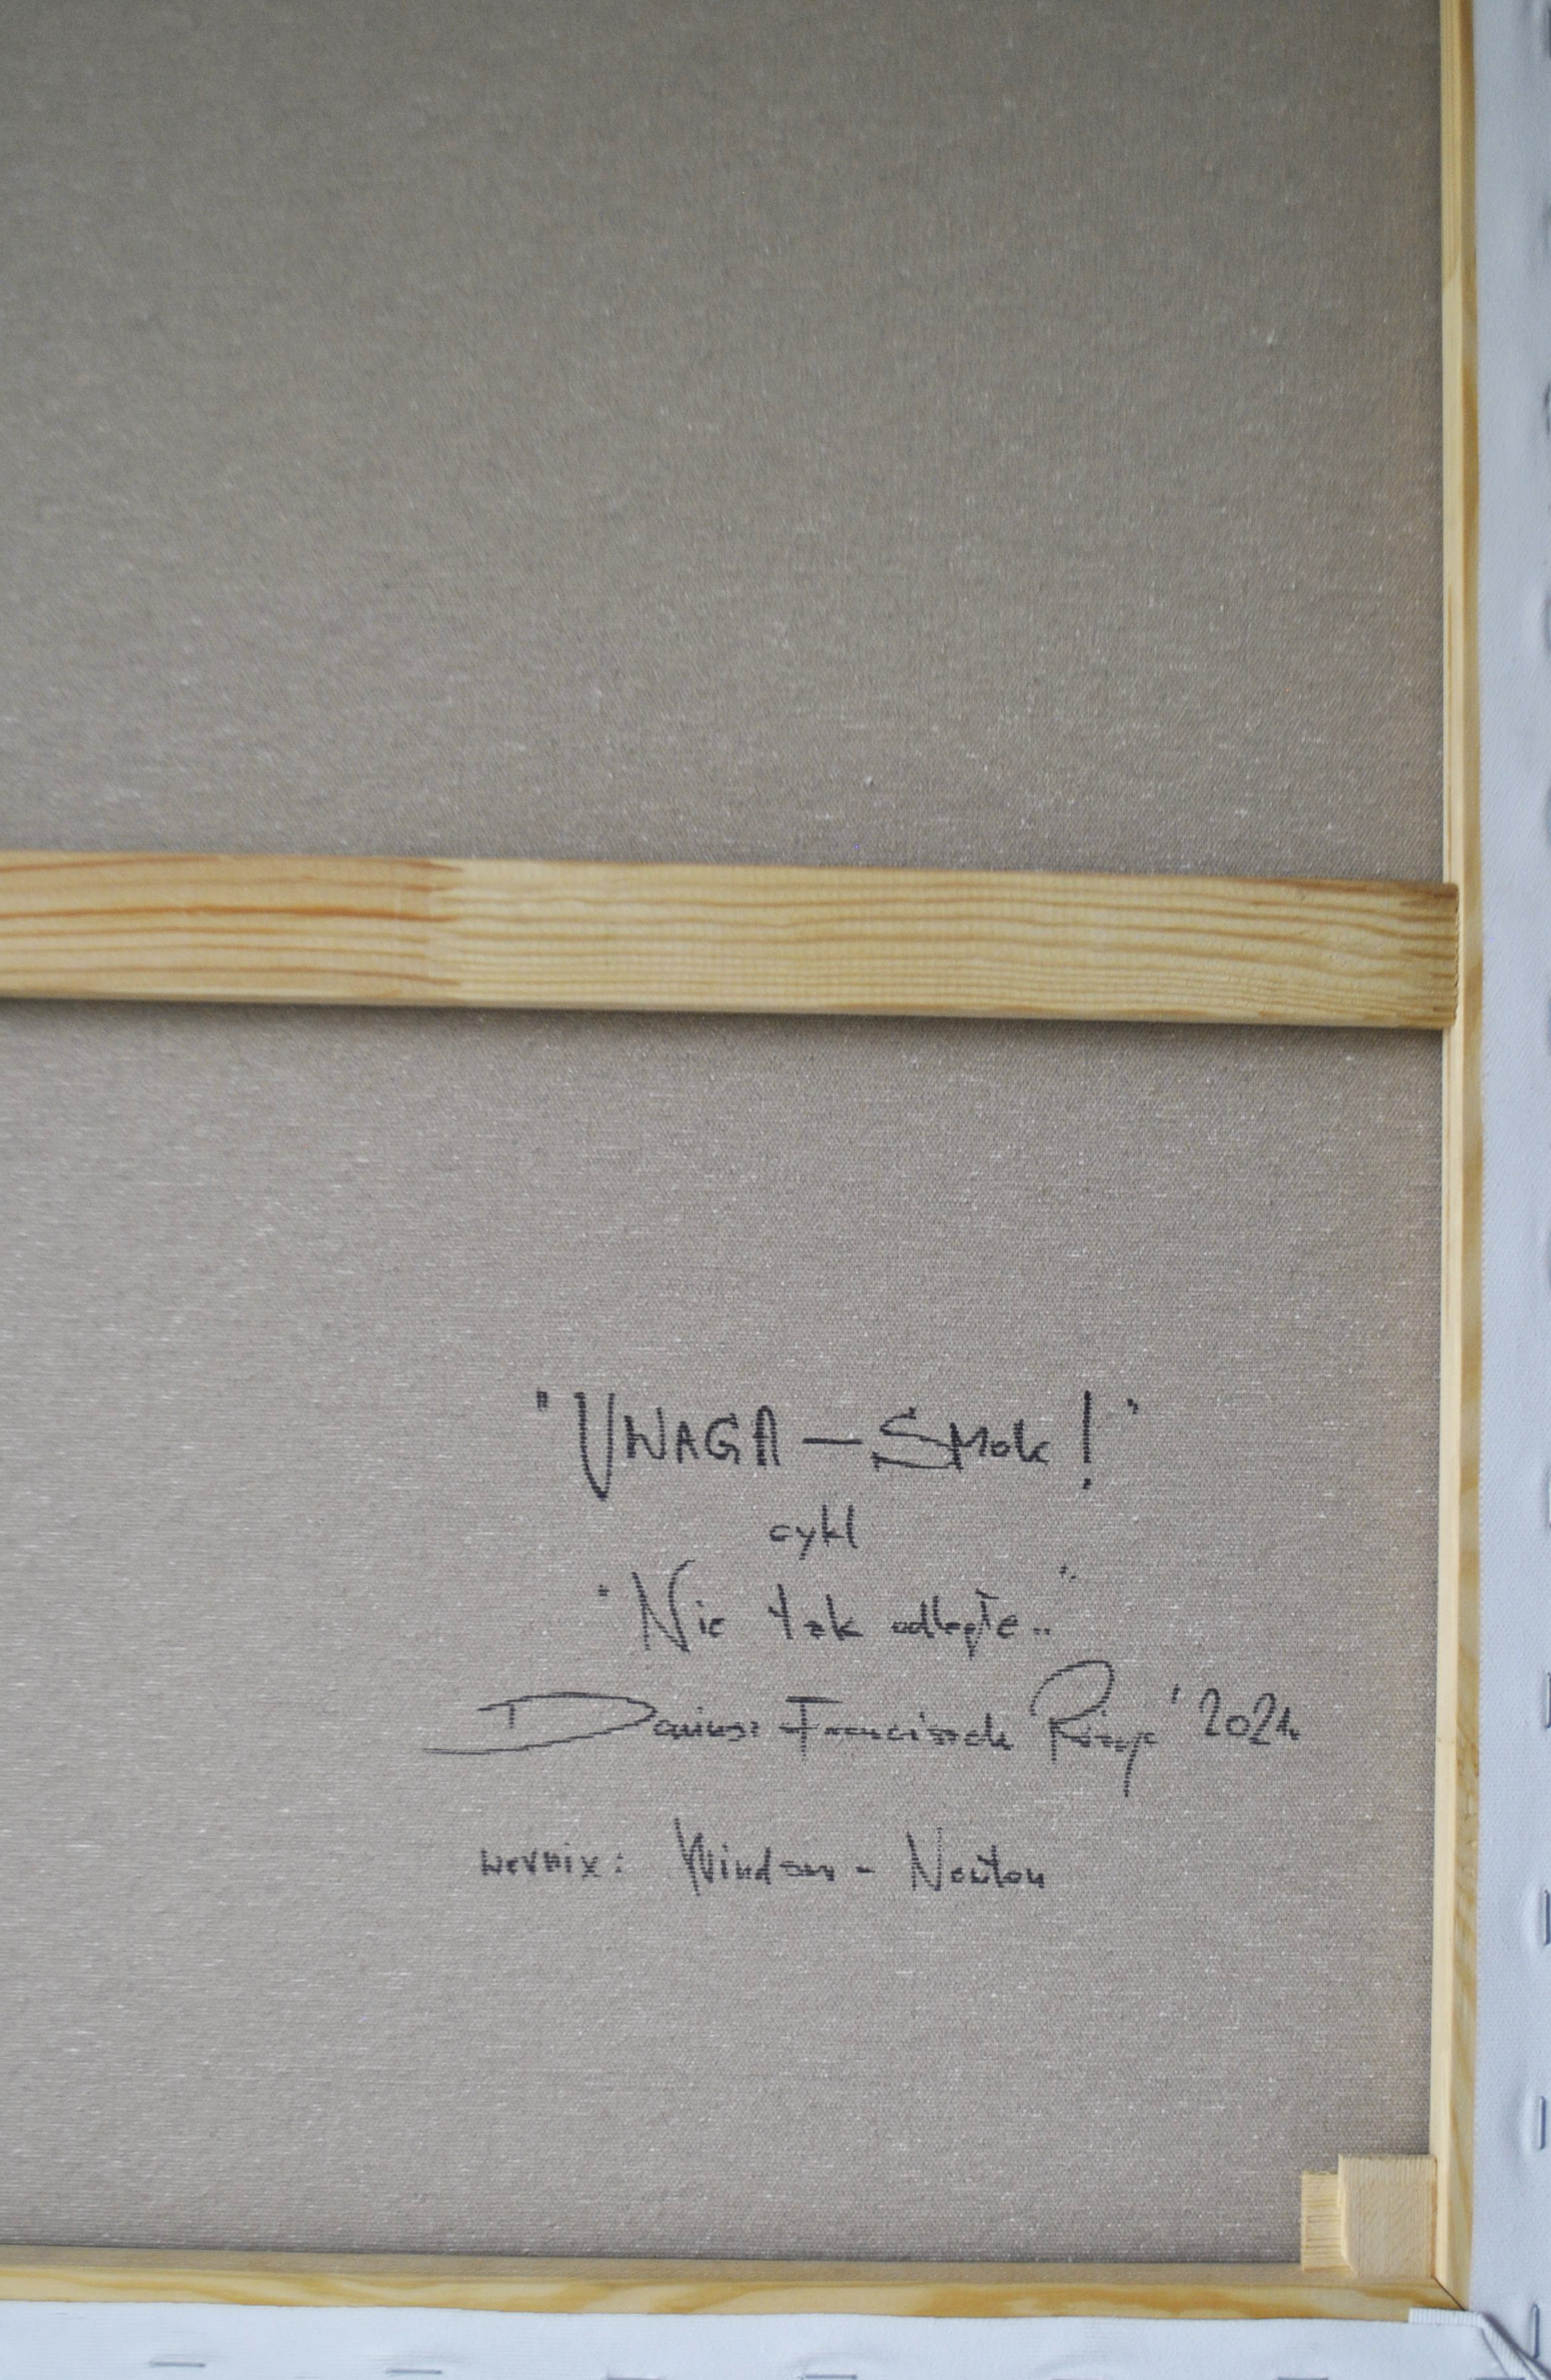 "UWAGA — SMok!"
cykl
"Nie tak odległe.."
Dariusz Franciszek '2021.
wernix: Windsor - Newton